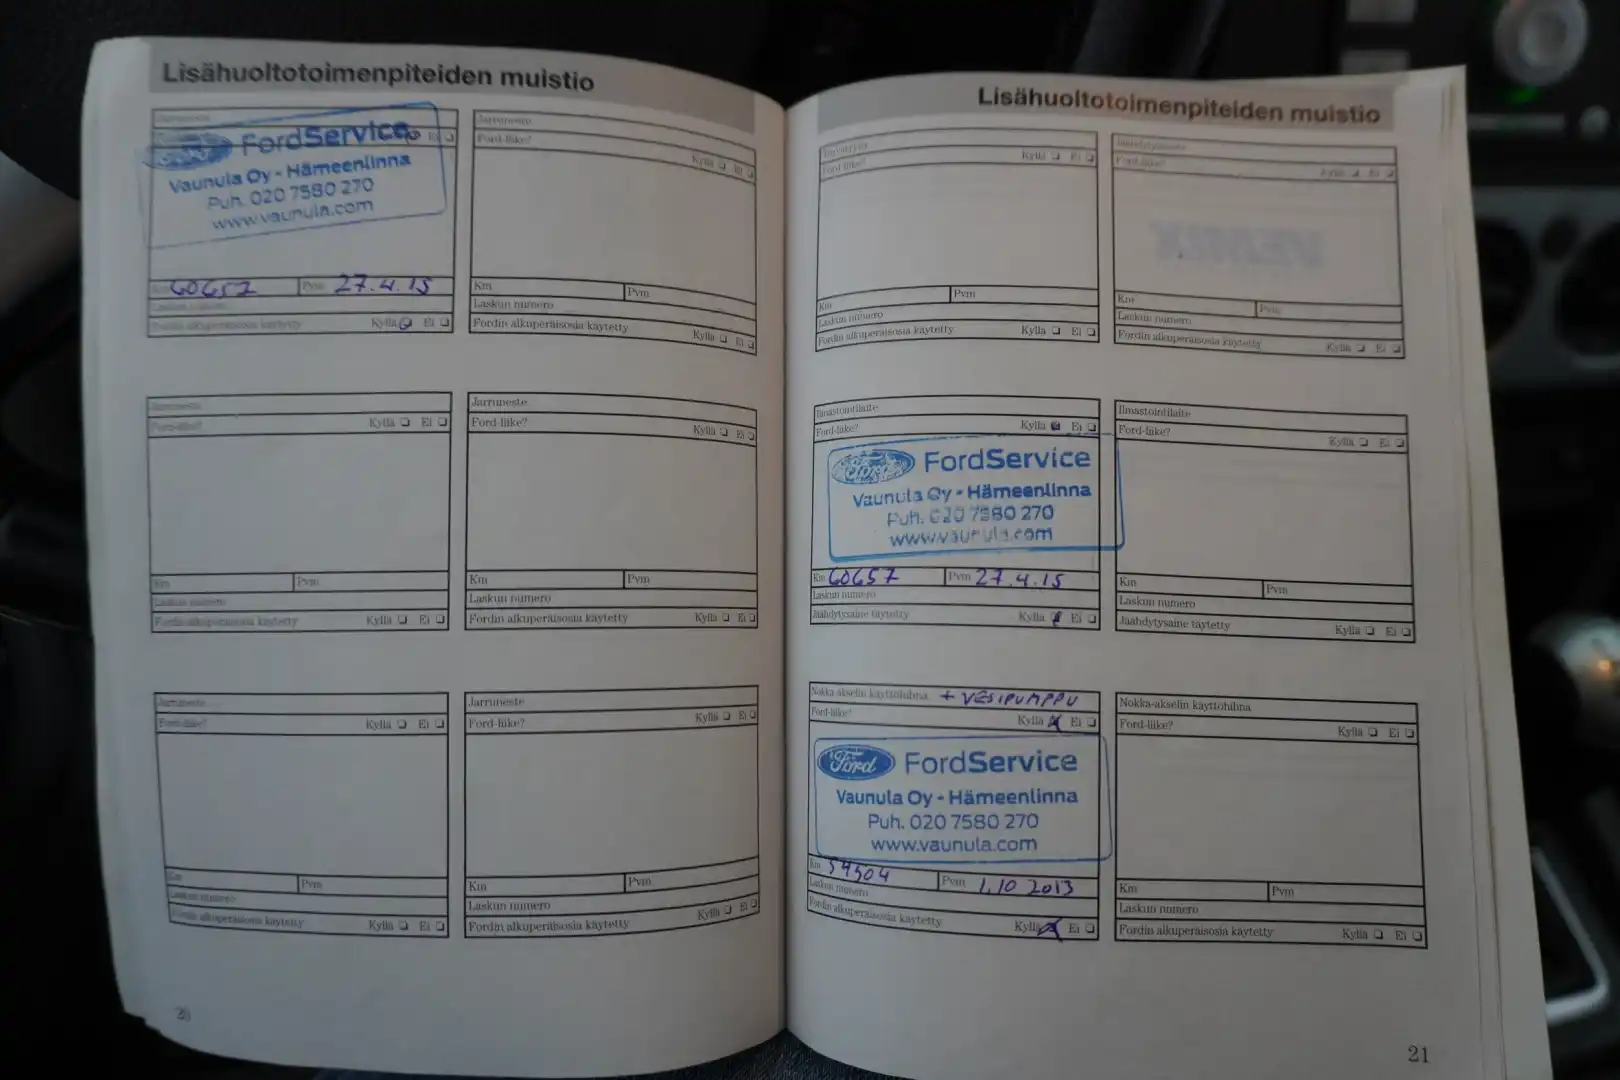 Lisähuoltotoimenpiteiden muistio
Jarruneste
Ei
FordService
Vaunula Oy - Hämeenlinna
Puh. 020 7580 270
www.vaunula.com
60657 Pvm 27.4.15
Fordin alkuperäisosia käytetty Kyllä Ei
Jarruneste
Ford-liike? Kyllä Ei
Km Pvm
Laskun numero
Fordin alkuperäisosia käytetty Kyllä Ei
Jarruneste
Ford-liike? Kyllä Ei
Km Pvm
Laskun numero
Fordin alkuperäisosia käytetty Kyllä Ei
Jarruneste
Ford-liike? Kyllä Ei
Km Pvm
Laskun numero
Fordin alkuperäisosia käytetty Kyllä Ei
Jarruneste
Ford-liike? Kyllä Ei
Km Pvm
Laskun numero
Fordin alkuperäisosia käytetty Kyllä Ei
Jarruneste
Ford-liike? Kyllä Ei
Km Pvm
Laskun numero
Fordin alkuperäisosia käytetty Kyllä Ei
20
Lisähuoltotoimenpiteiden muistio
Ford-liike? Kyllä Ei
Km Pvm
Laskun numero
Fordin alkuperäisosia käytetty Kyllä Ei
Jäähdytysneste
Ford-liike? Kyllä Ei
Km Pvm
Laskun numero
Fordin alkuperäisosia käytetty Kyllä Ei
Ilmastointilaite
Ford-liike? Kyllä Ei
Ford FordService
Vaunula Oy - Hämeenlinna
Puh. 020 7580 270
www.vaunula.com
Km 60657 Pvm 27.4.15
Laskun numero
Jäähdytysaine täytetty Kyllä Ei
Ilmastointilaite
Ford-liike? Kyllä Ei
Km Pvm
Laskun numero
Jäähdytysaine täytetty Kyllä Ei
Nokka-akselin käyttöhihna + VESIPUMPPU
Ford-liike? Kyllä Ei
Ford FordService
Vaunula Oy - Hämeenlinna
Puh. 020 7580 270
www.vaunula.com
Km 54504 Pvm 1.10 2013
Laskun numero
Fordin alkuperäisosia käytetty Kyllä Ei
Nokka-akselin käyttöhihna
Ford-liike? Kyllä Ei
Km Pvm
Laskun numero
Fordin alkuperäisosia käytetty Kyllä Ei
21